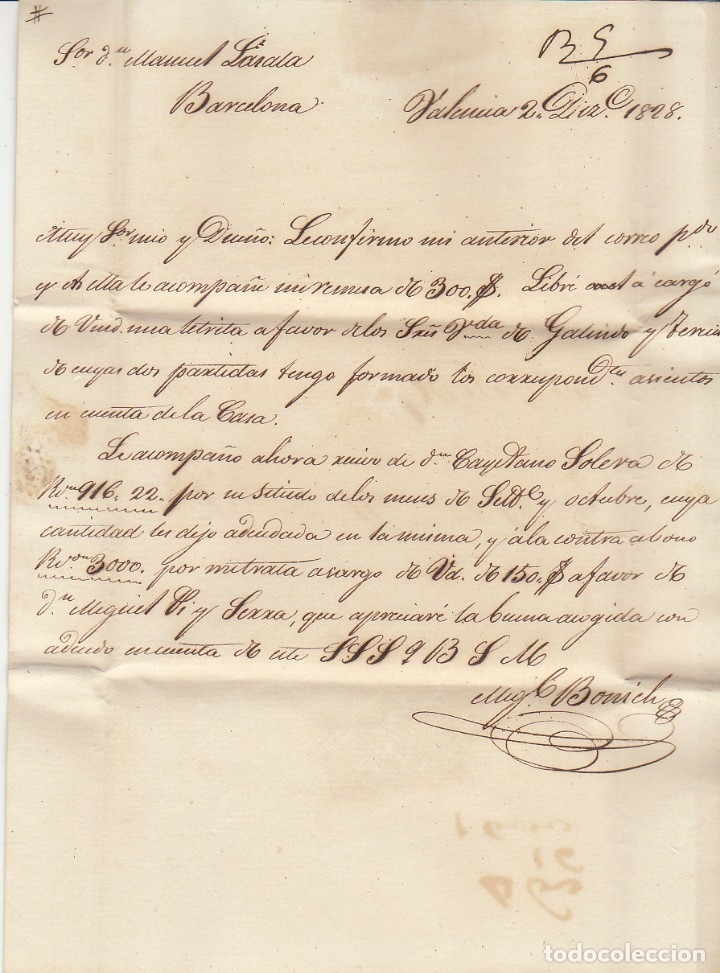 #
R S
6
Sor. dn. Manuel Lasala
Barcelona
Valencia 2. Dize. 1828.
Muy Sor mio y Dueño: Le confirmo mi anterior del correo pdo
y le acompañe mi remesa de 300.$. Libré a cargo
de Vmd. una letrita a favor de los Sres Vda de Galindo y
de cuyas dos partidas tengo formado los correspondtes asientos
en cuenta de la Casa.
Le acompaño ahora recivo de dn. Cayetano Solera de
Rvn. 916. 22. por su sueldo de los meses de Sette. y octubre, cuya
cantidad les dejo adeudada en la misma, y á la contra abono
Rvon 3000. por mi trata a cargo de Vd. de 150.$ a favor de
dn. Miguel Pi y Serra, que apreciaré la buena acogida con
adeudo en cuenta de este S S S q B S M
Migl. Bonich
todocoleccion
todocoleccion.net